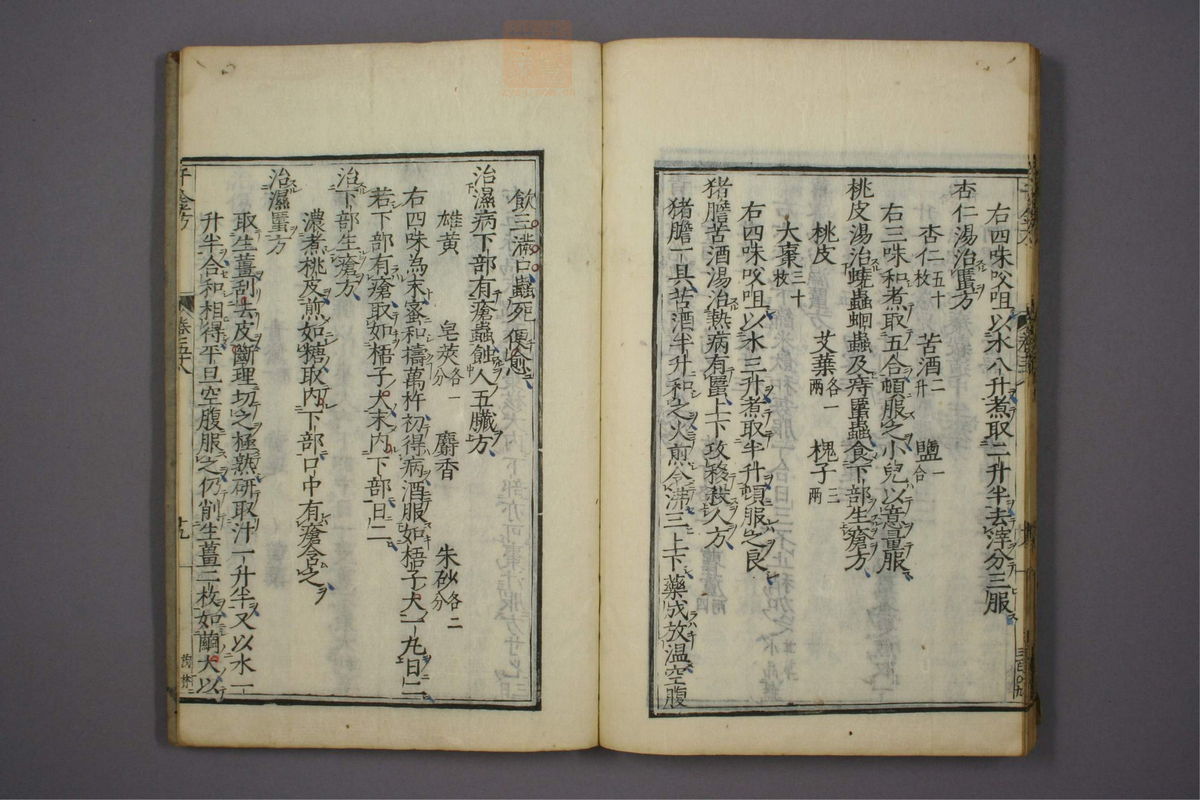 右四味㕮咀以水八升煮取二升半去滓分三服
杏仁湯治䘌方
杏仁五十枚 苦酒二升 鹽一合
右三味和煮取五合頓服之小兒以意量服
桃皮湯治蟯蟲蛔蟲及痔䘌蟲食下部生瘡方
桃皮 艾葉各一兩 槐子三兩
大棗三十枚
右四味㕮咀以水三升煮取半升頓服之良
猪膽苦酒湯治熱病有䘌上下攻移殺人方
猪膽一具苦酒半升和之火煎令沸三上下藥成放溫空腹
飲三滿口蟲死便愈
治濕病下部有瘡蟲蝕人五臟方
雄黃 皂莢各一分 麝香 朱砂各二分
右四味為末蜜和擣萬杵初得病酒服如梧子大一丸日二
若下部有瘡取如梧子大末內下部日二
治下部生瘡方
濃煮桃皮煎如糖取內下部口中有瘡含之
治濕䘌方
取生薑刮去皮斷理切之極熟研取汁一升半又以水一
升半合和相得平旦空腹服之仍削生薑二枚如繭大以
千金方 卷五十八 十九